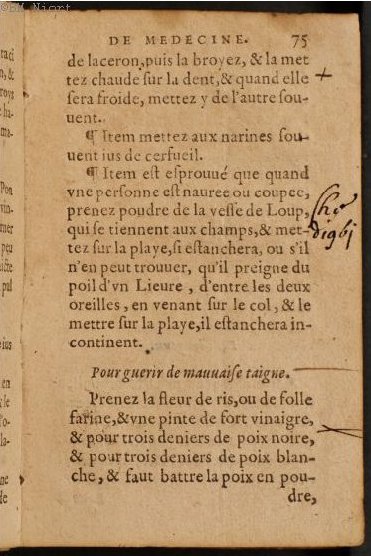 DE MEDECINE. 75
de laceron, puis la broyez, & la met
tez chaude sur la dent, & quand elle +
sera froide, mettez y de l'autre sou-
uent.
¶ Item mettez aux narines sou-
uent ius de cerfueil.
¶ Item est esprouué que quand
vne personne est nauree ou coupee,
prenez poudre de la vesse de Loup,
qui se tiennent aux champs, & met-
tez sur la playe, si estanchera, ou s'il
n'en peut trouuer, qu'il preigne du
poil d'vn Lieure, d'entre les deux
oreilles, en venant sur le col, & le
mettre sur la playe, il estanchera in-
continent.
Pour guerir de mauuaise taigne.
Prenez la fleur de ris, ou de folle
farine, & vne pinte de fort vinaigre,
& pour trois deniers de poix noire,
& pour trois deniers de poix blan-
che, & faut battre la poix en pou-
dre,